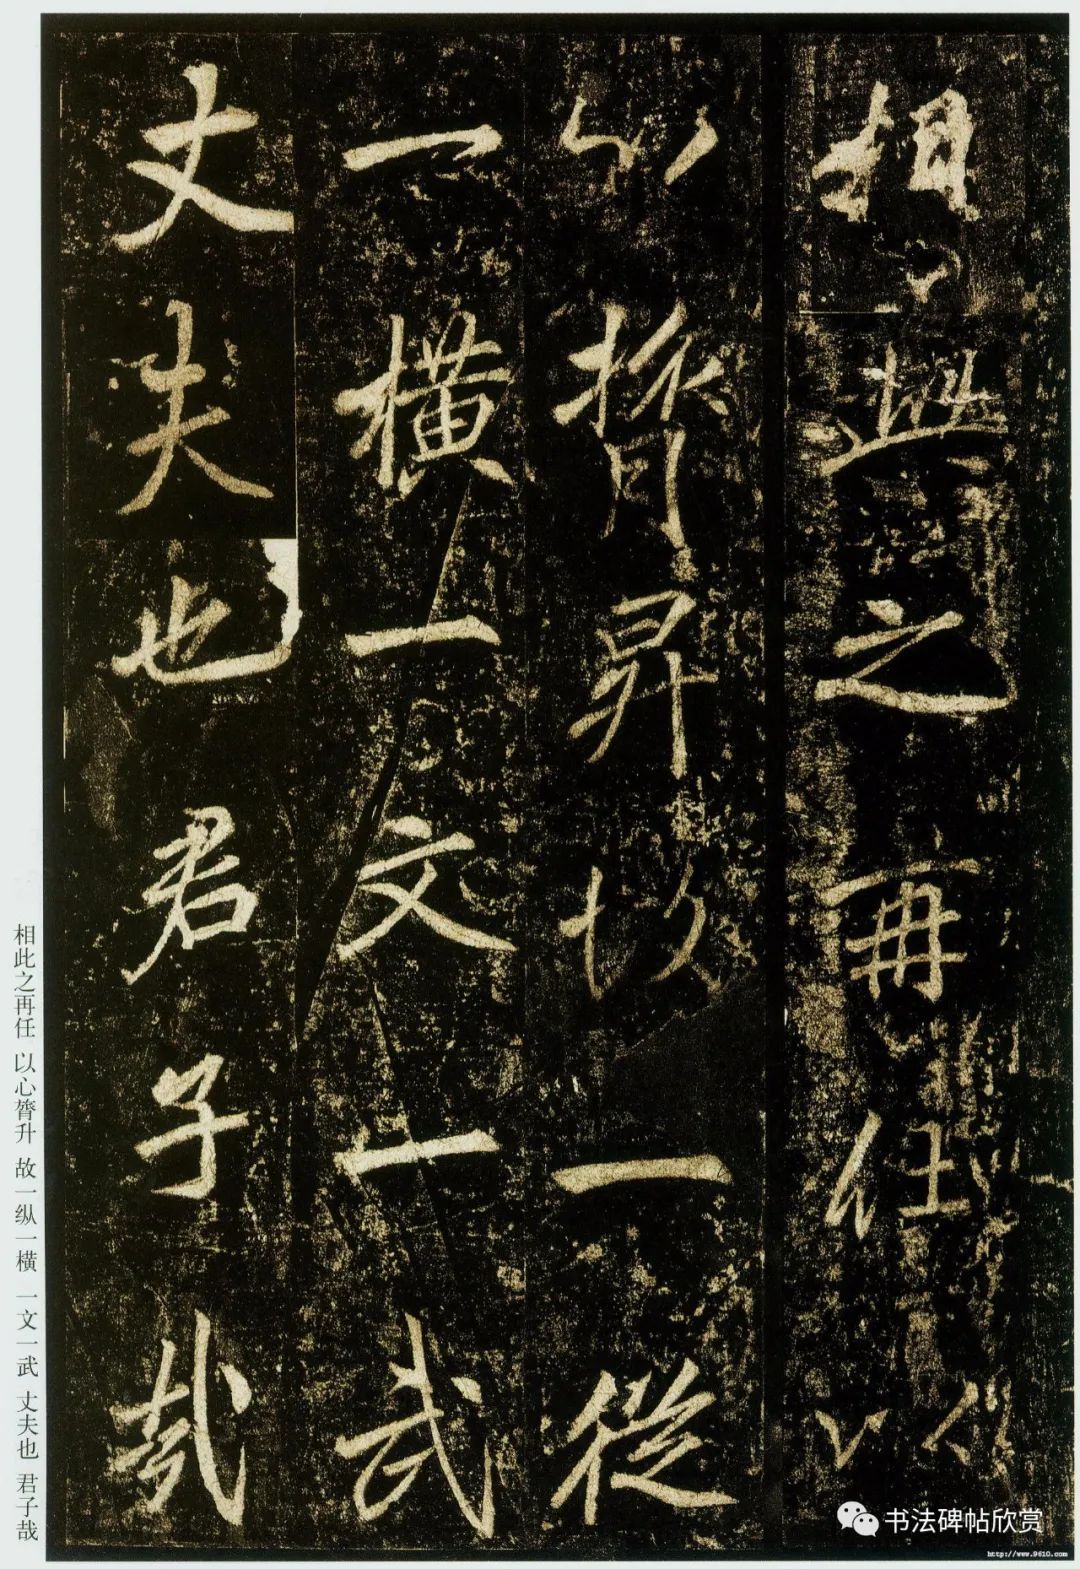 相此之再任以
心膂昇故一從
一橫一文一武
丈夫也君子哉
相此之再任 以心膂升 故一纵一横 一文一武 丈夫也 君子哉
书法碑帖欣赏
http://www.9610.com